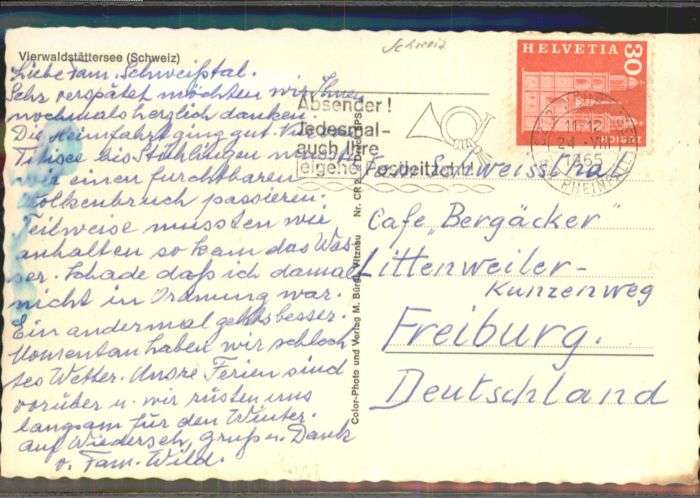 Schweiz
Vierwaldstättersee (Schweiz)
Liebe Fam. Schweißtal.
Sehr verspätet möchten wir Ihnen
nochmals herzlich danken.
Die Heimfahrt ging gut. Von
Titisee bis Stühlingen mussten
wir einen furchtbaren
Wolkenbruch passieren.
Teilweise mussten wir
anhalten so kam das Was-
ser. Schade daß ich damals
nicht in Ordnung war.
Ein andermal geht's besser.
Momentan haben wir schlech
tes Wetter. Unsre Ferien sind
vorüber u. wir rüsten uns
langsam für den Winter.
auf Wiederseh, gruß u. Dank
v. Fam. Wild.
Color-Photo und Verlag M. Bürgi, Vitznau Nr. CR
HELVETIA
30
ZUERICH
Absender!
Jedesmal
auch Ihre
eigene Postleitzahl
1965
RHEINFALL
Fam. Schweissthal
Cafe „Bergäcker"
Littenweiler-
Kunzenweg
Freiburg.
Deutschland